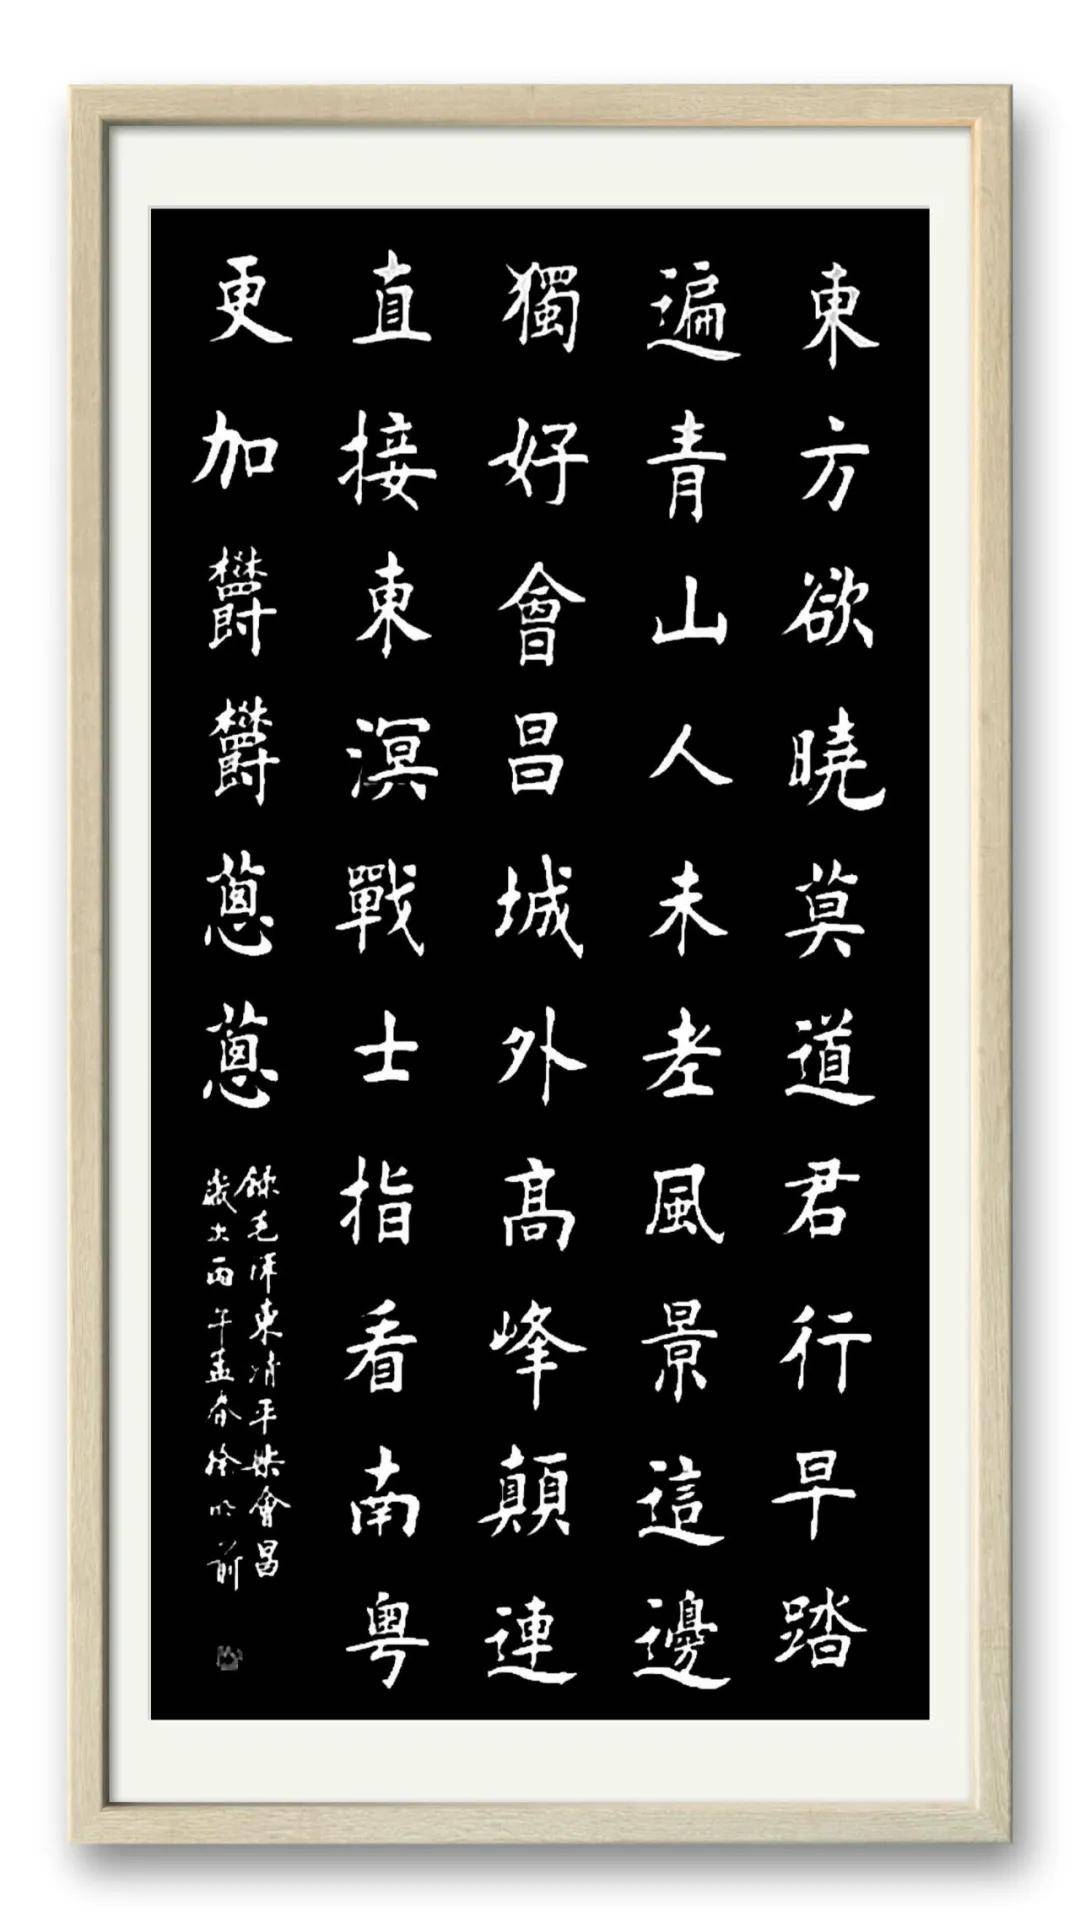 東方欲曉莫道君行早踏
遍青山人未老風景這邊
獨好會昌城外髙峰顛連
直接東溟戰士指看南粤
更加欝欝蔥蔥
錄毛澤東清平樂會昌
歲次丙午孟春徐明前